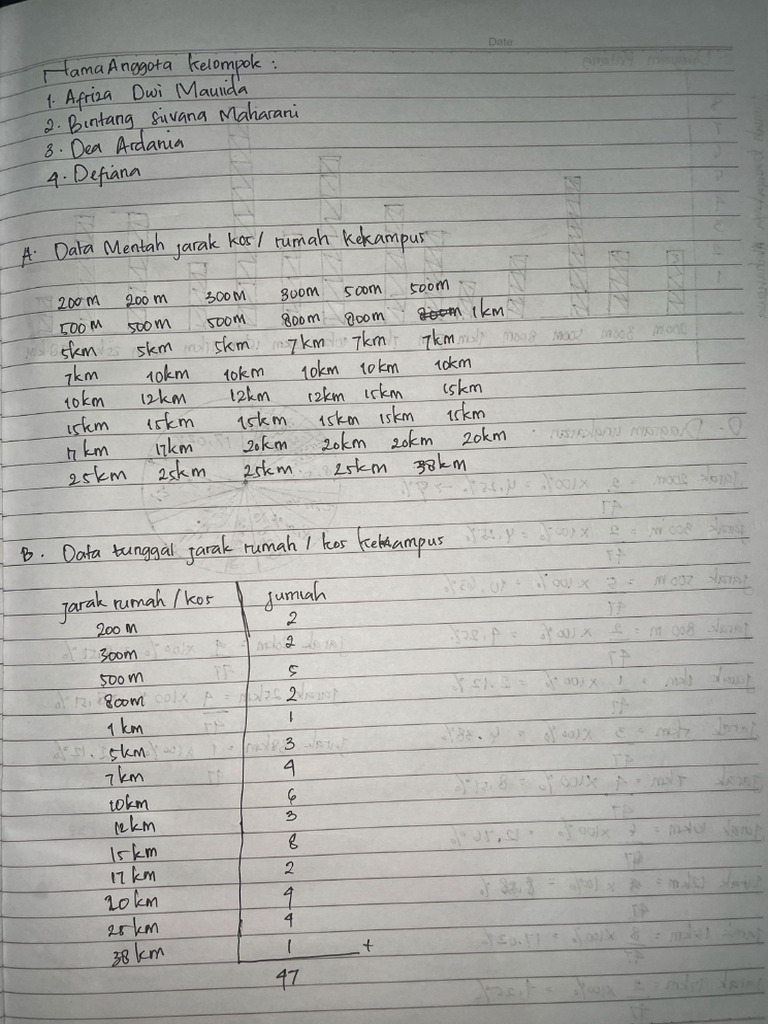 Date
Nama Anggota Kelompok :
1. Afriza Dwi Maulida
2. Bintang Silvana Maharani
3. Dea Ardania
4. Defiana
A. Data Mentah jarak kos / rumah kekampus
200 m 200 m 300 m 300 m 500 m 500m
500 m 500 m 500m 800m 800m 1 km
5km 5km 5km 7km 7km 7km
7km 10km 10km 10km 10km 10km
10km 12km 12km 12km 15km 15km
15km 15km 15km 15km 15km 15km
17km 17km 20km 20km 20km 20km
25km 25km 25km 25km 38km
B. Data tunggal jarak rumah / kos kekampus
jarak rumah / kos jumlah
200 m 2
300m 2
500 m 5
800m 2
1 km 1
5km 3
7km 4
10km 6
12km 3
15km 8
17km 2
20km 4
25km 4
38km 1 +
47